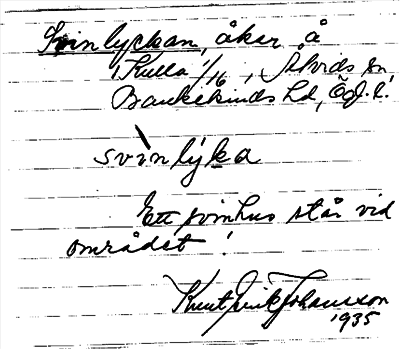 Svinlyckan, åker å
1 Kulla 1/16, Åtvids sn
Bankekinds hd, Ög. l.
svìnlỳka
Ett svinhus står vid
området!
Knut Erik Johansson
1935